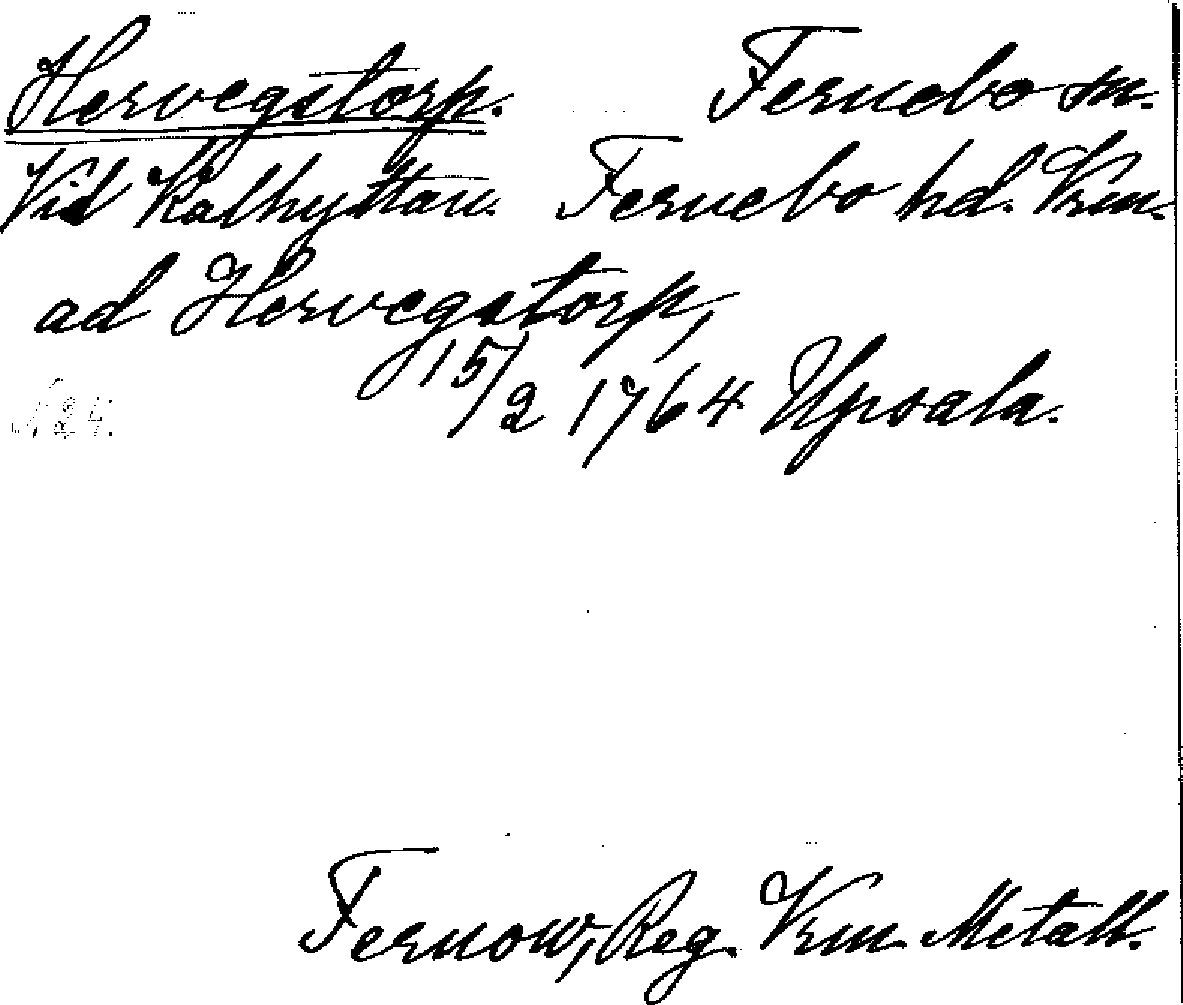 Hervegstorp. Fernebo sn.
Vid Kalhyttan. Fernebo hd. Vrm.
ad Hervegstorp,
15/2 1764 Upsala.
124.
Fernow, Reg. Vrm. Metall.